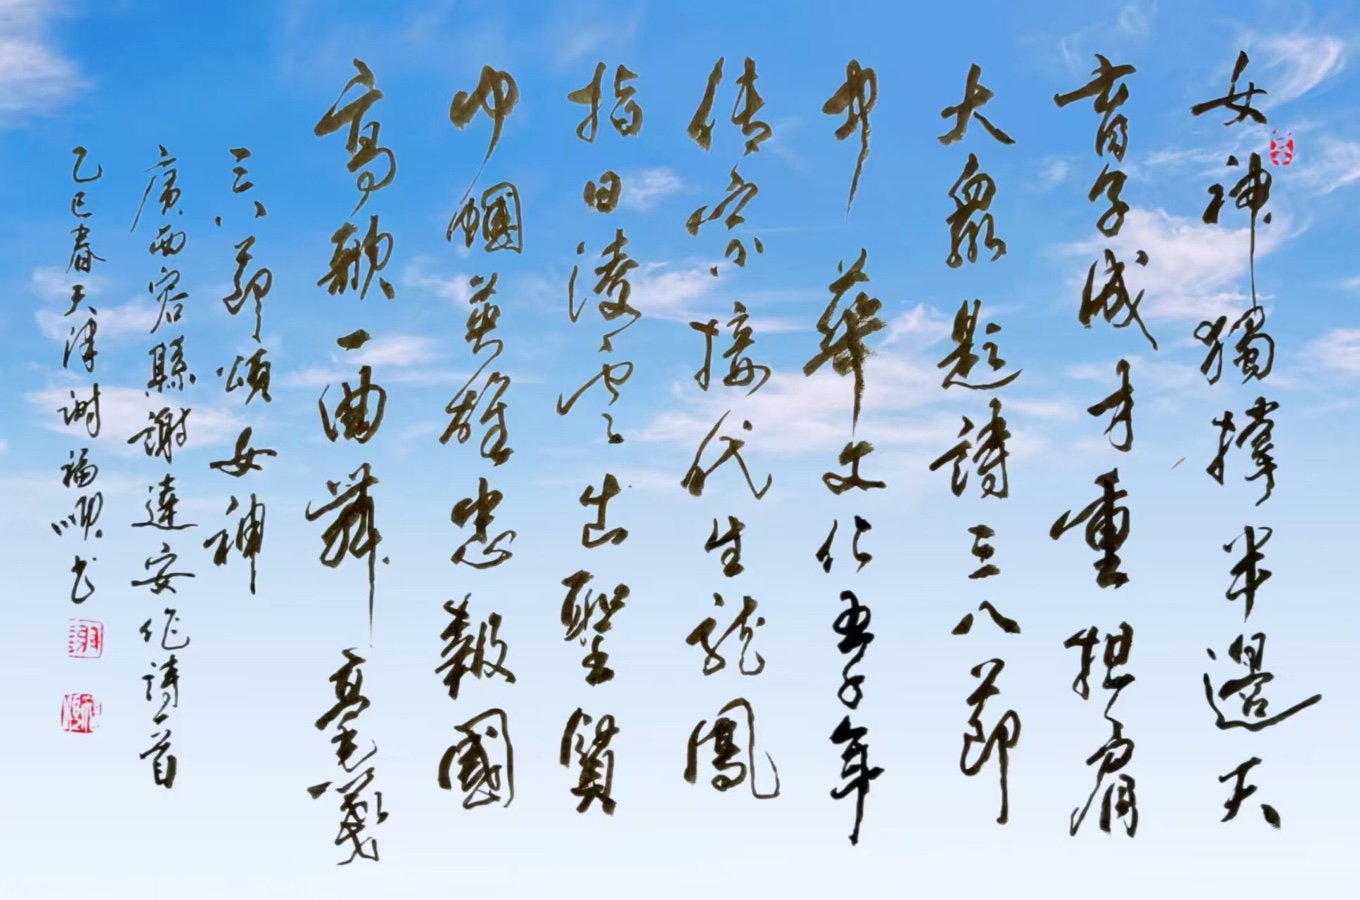 女神獨撑半邊天
育子成才重担肩
大衆題詩三八節
中華文化五千年
传宗接代生龍鳳
指日凌雲出聖賢
巾幗英雄忠報國
高歌一曲舞毫箋
三八節頌女神
廣西容縣謝達安作詩一首
乙巳春天津謝福順书